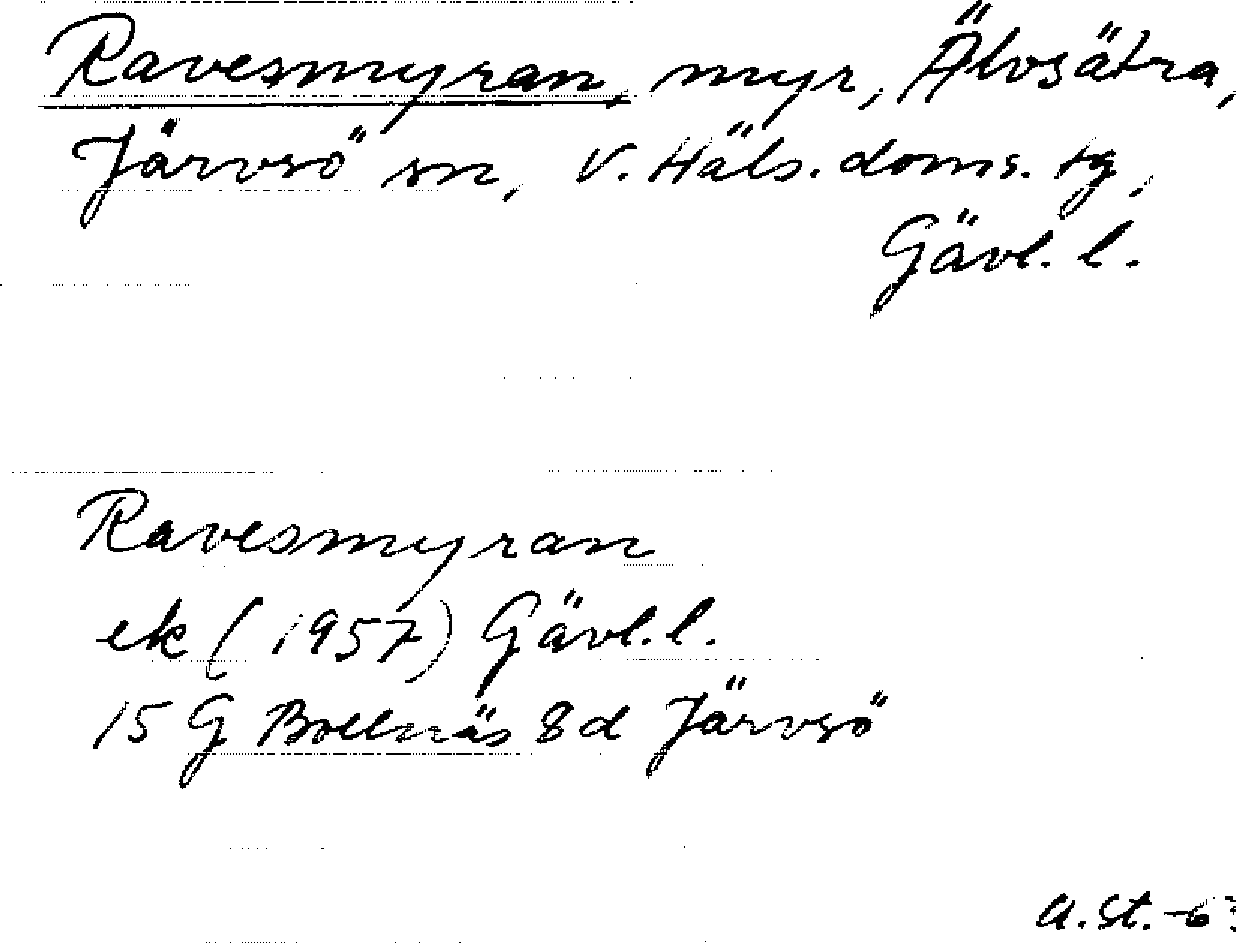 Ravesmyran, myr, Älvsätra,
Järvsö sn, V. Häls. doms. tg,
Gävl. l.
Ravesmyran
ek (1957) Gävl. l.
15 G Bollnäs 8d Järvsö
A. St. -63